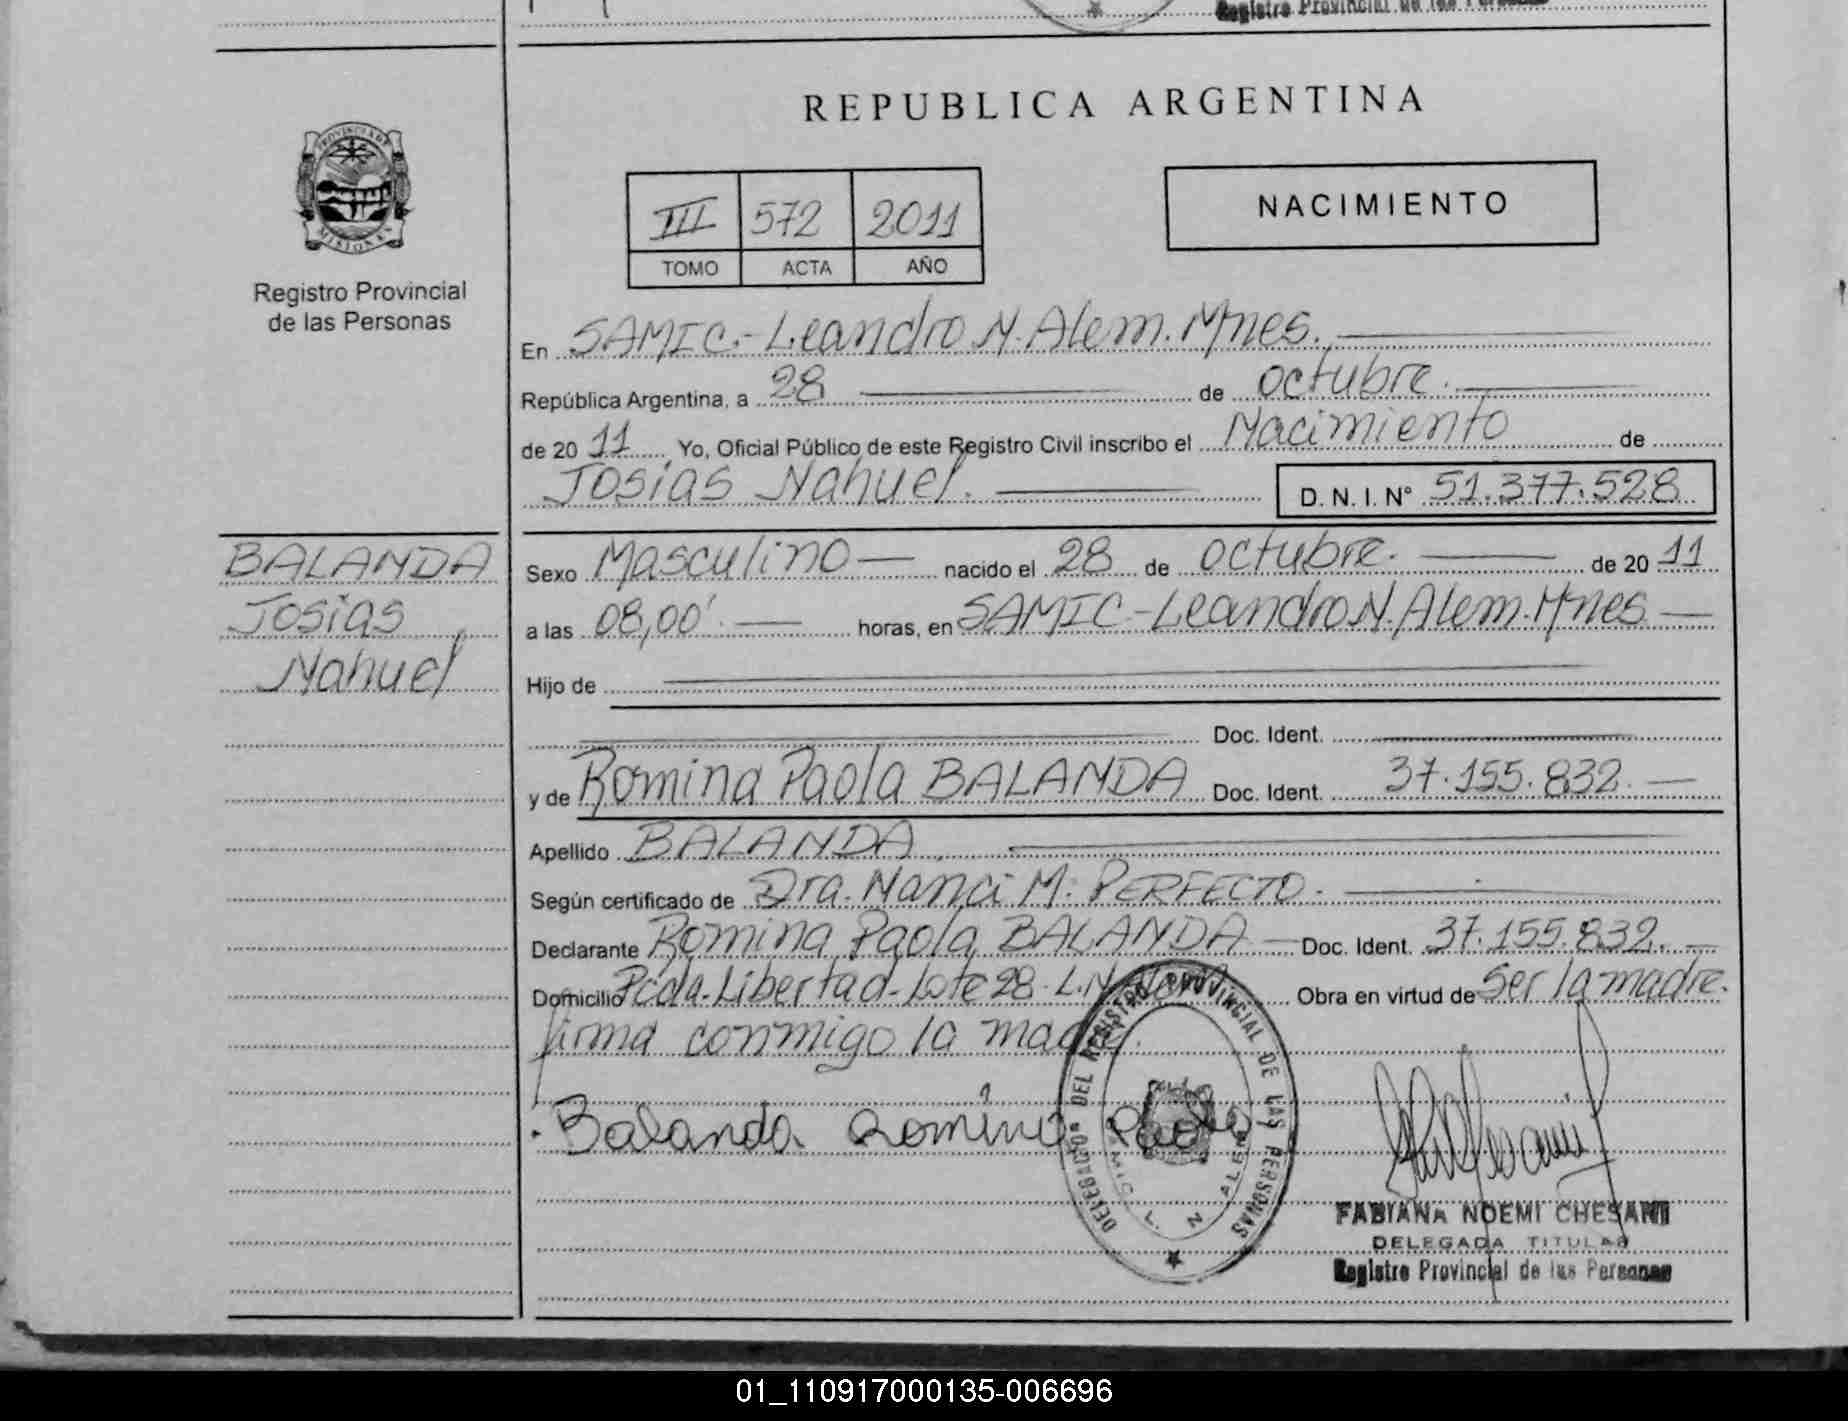 Registro Provincial de las Personas
REPUBLICA ARGENTINA
PROVINCIA DE
MISIONES
Registro Provincial
de las Personas
III 572 2011
TOMO ACTA AÑO
NACIMIENTO
En SAMIC.- Leandro N. Alem. Mnes.
República Argentina, a 28 de octubre.
de 20 11 Yo, Oficial Público de este Registro Civil inscribo el Nacimiento de
Josías Nahuel. D. N. I. N° 51.377.528
BALANDA
Josías
Nahuel
Sexo Masculino nacido el 28 de octubre. de 20 11
a las 08,00'. horas, en SAMIC - Leandro N. Alem. Mnes
Hijo de
Doc. Ident.
y de Romina Paola BALANDA Doc. Ident. 37.155.832.
Apellido BALANDA
Según certificado de Dra. Nanci M. PERFECTO.
Declarante Romina Paola BALANDA Doc. Ident. 37.155.832.
Domicilio Pcda. Libertad - Lote 28 - L.N. Alem Obra en virtud de Ser la madre.
firma conmigo la madre.
Balanda Romina Paola
DELEGACIÓN DEL REGISTRO PROVINCIAL DE LAS PERSONAS
SAMIC L. N. ALEM
FABIANA NOEMI CHESANI
DELEGADA TITULAR
Registro Provincial de las Personas
01_110917000135-006696